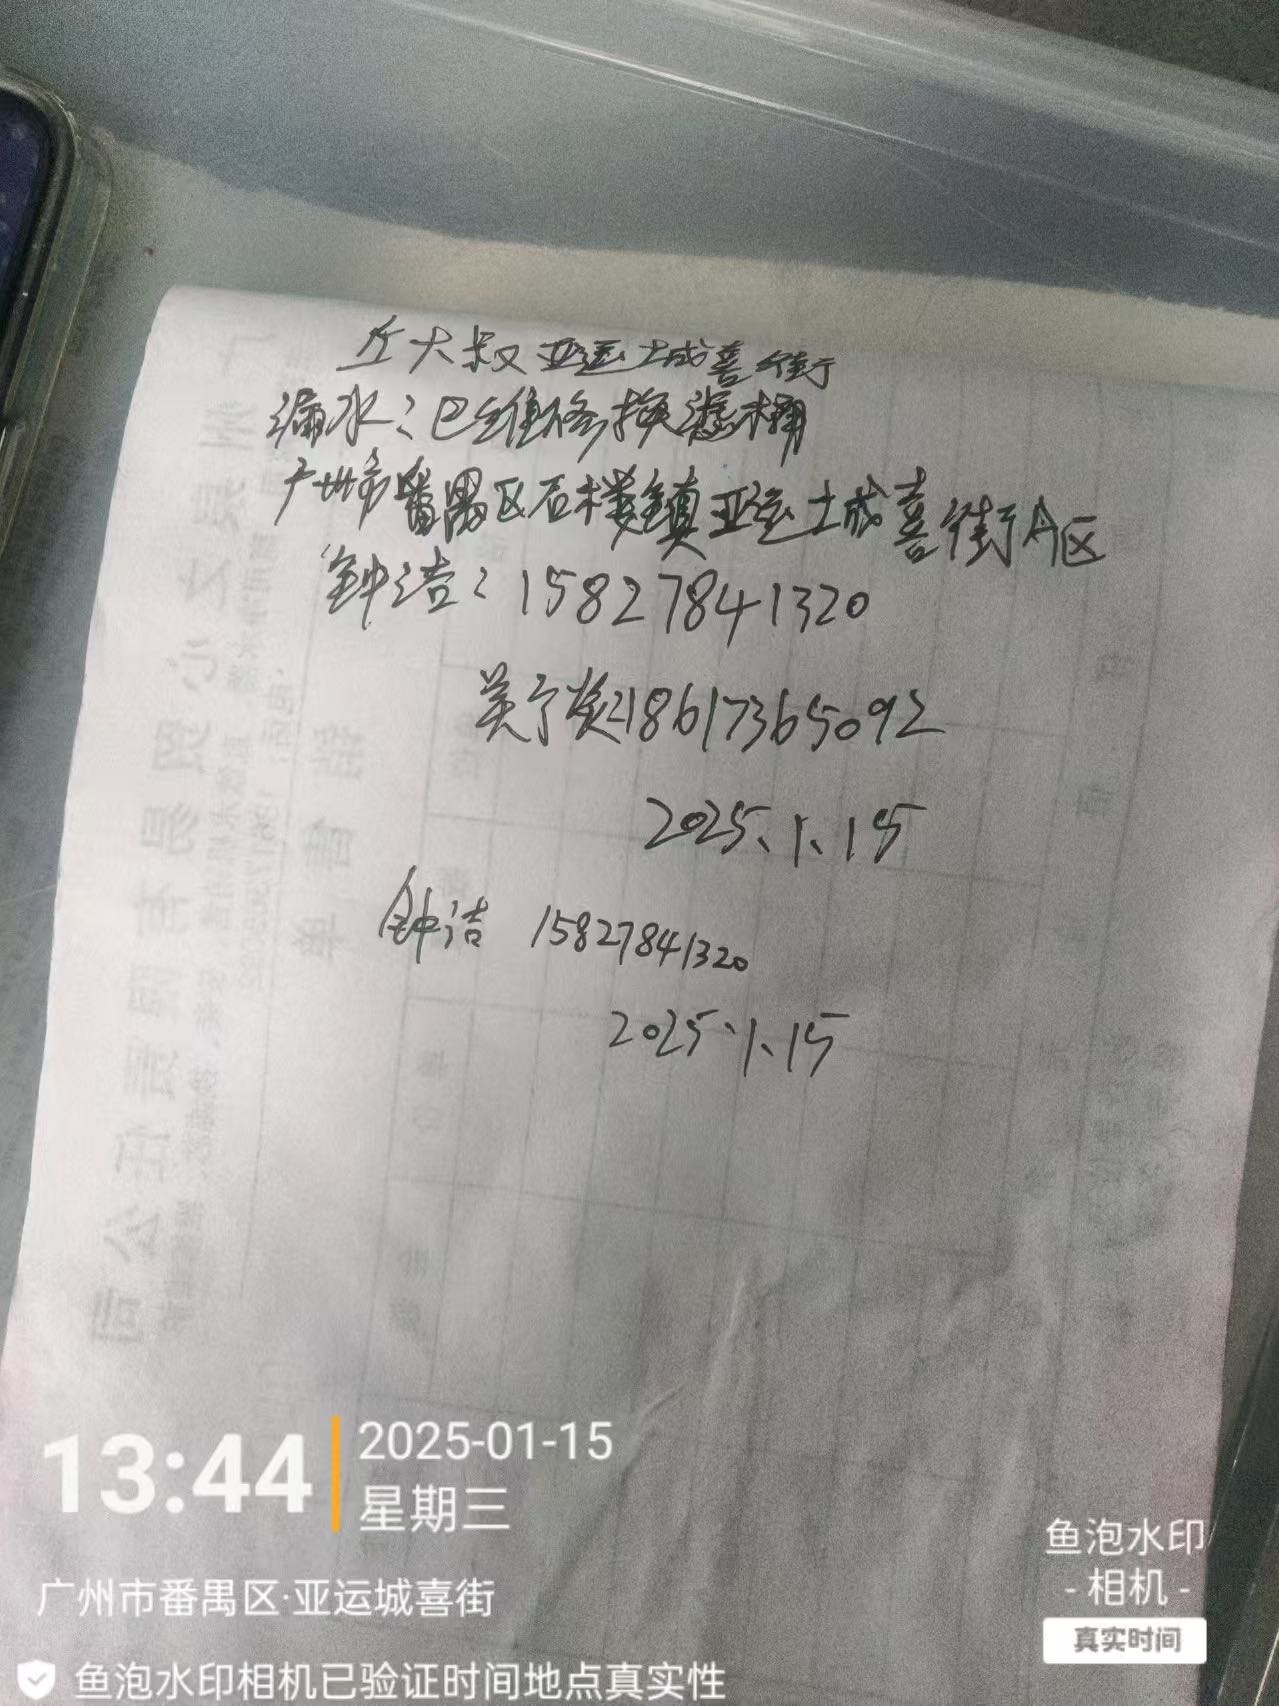 丘大叔亚运城喜街
漏水:已维修换滤桶
广州市番禺区石楼镇亚运城喜街A区
钟洁:15827841320
18617365092
2025、1、15
钟洁 15827841320
2025、1、15
13:44
2025-01-15
星期三
广州市番禺区·亚运城喜街
鱼泡水印相机已验证时间地点真实性
鱼泡水印
-相机-
真实时间